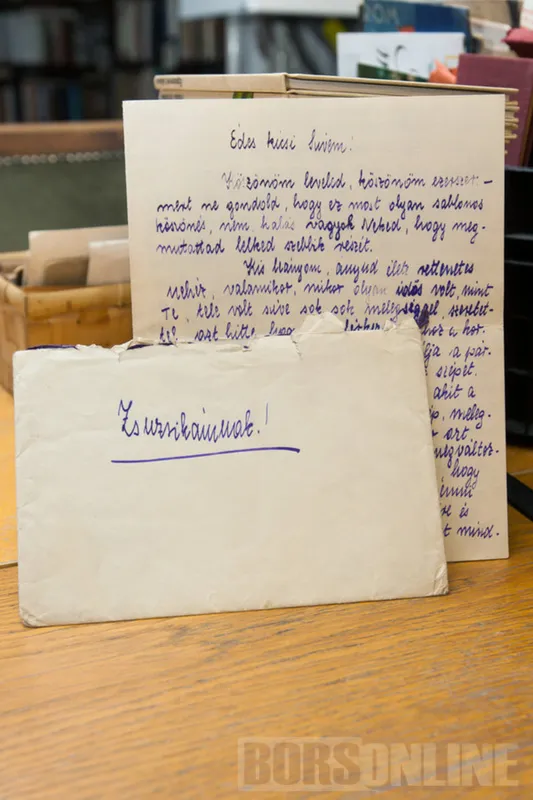 Édes kicsi Szívem!
Köszönöm leveled, köszönöm ezerszer –
mert ne gondold, hogy ez most olyan sablonos
köszönés, nem, hálás vagyok Neked, hogy meg-
mutattad lelked szebbik részét.
Kis leányom, anyud élete rettenetes
nehéz, valamikor, mikor olyan idős volt, mint
Te, tele volt szíve sok sok melegséggel, szeretet-
tel, azt hitte, hogy
a pár-
szépét.
akit a
meleg-
azt
megváltoz-
hogy
és
mind-
Zsuzsikámnak!
BORSONLINE